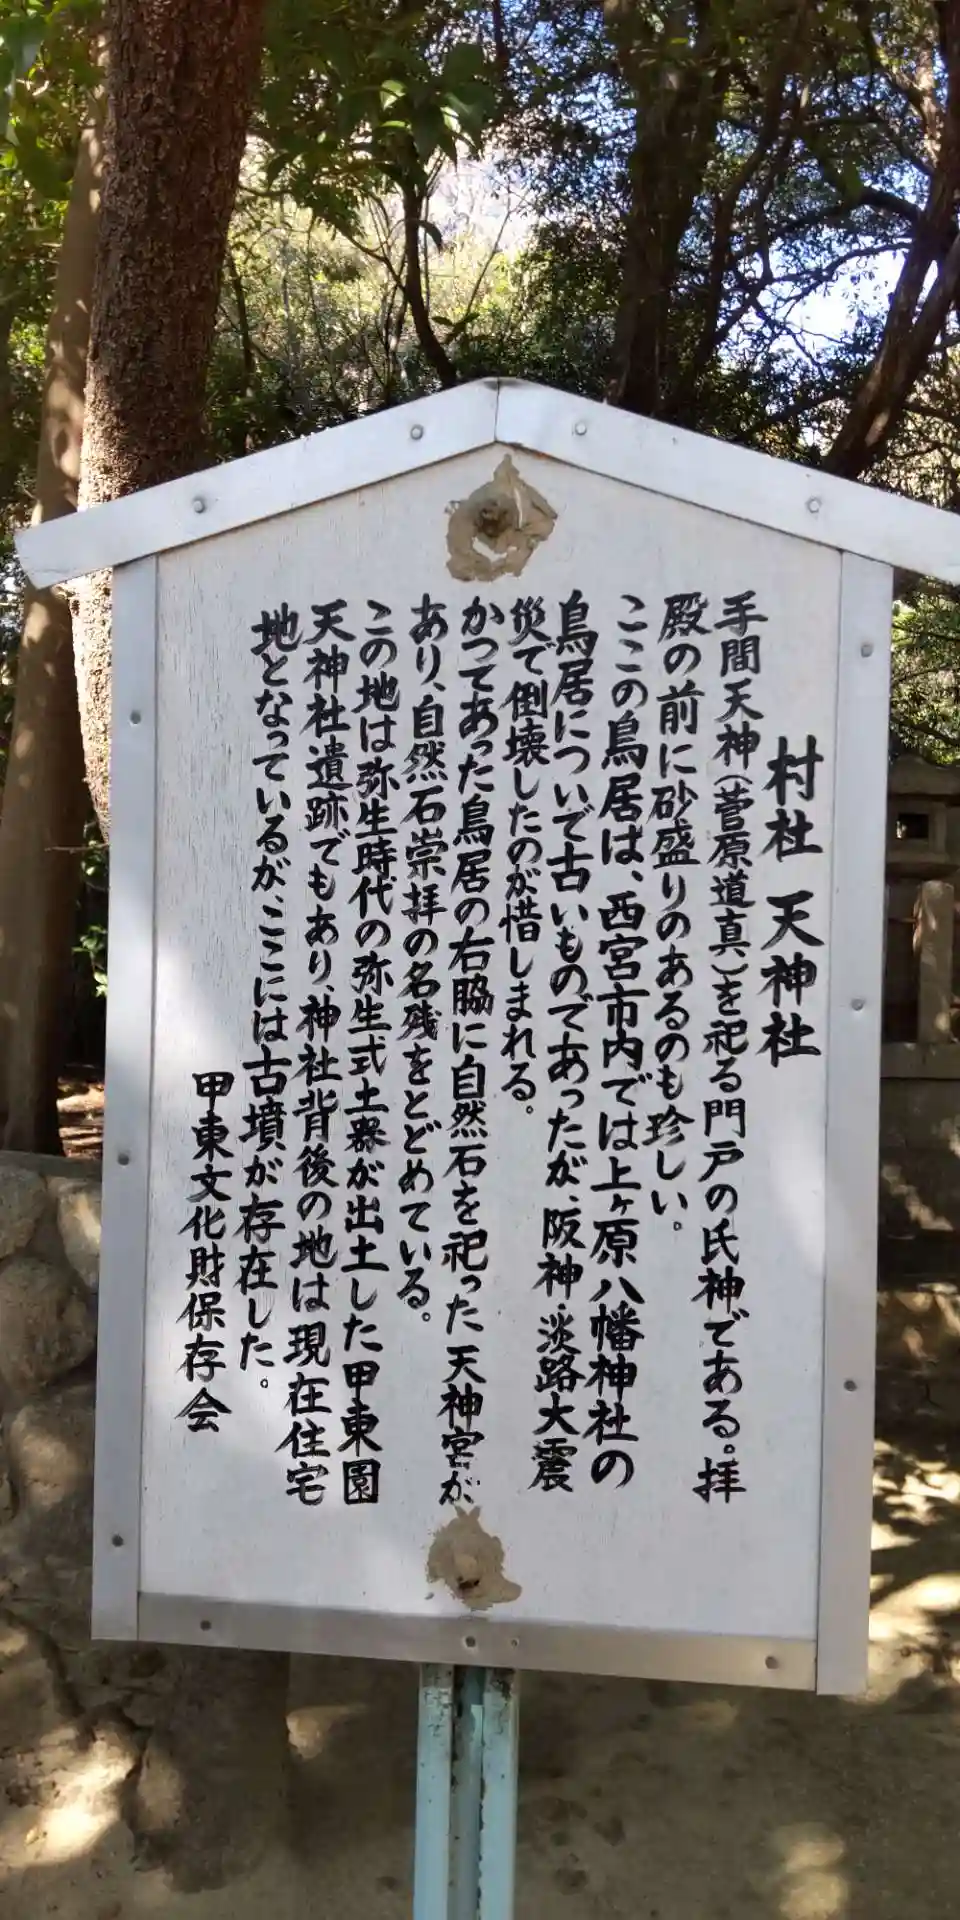 村社 天神社
手間天神(菅原道真)を祀る門戸の氏神である。拝
殿の前に砂盛りのあるのも珍しい。
ここの鳥居は、西宮市内では上ヶ原八幡神社の
鳥居についで古いものであったが、阪神・淡路大震
災で倒壊したのが惜しまれる。
かつてあった鳥居の右脇に自然石を祀った天神宮が
あり、自然石崇拝の名残をとどめている。
この地は弥生時代の弥生式土器が出土した甲東園
天神社遺跡でもあり、神社背後の地は現在住宅
地となっているが、ここには古墳が存在した。
甲東文化財保存会